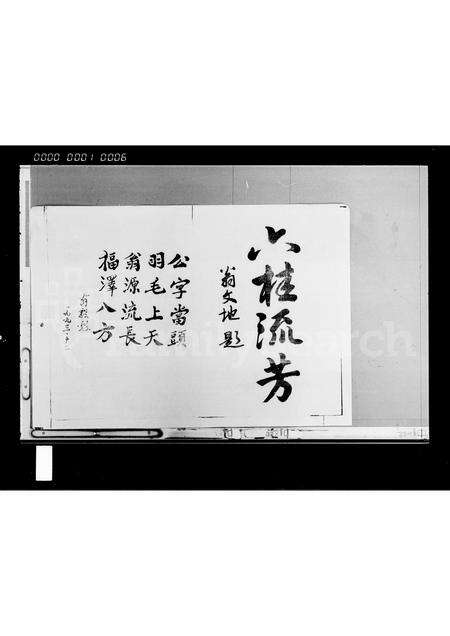 0000 0001 0006
六桂流芳
翁文地題
公字當頭
羽毛上天
翁源流長
福澤八方